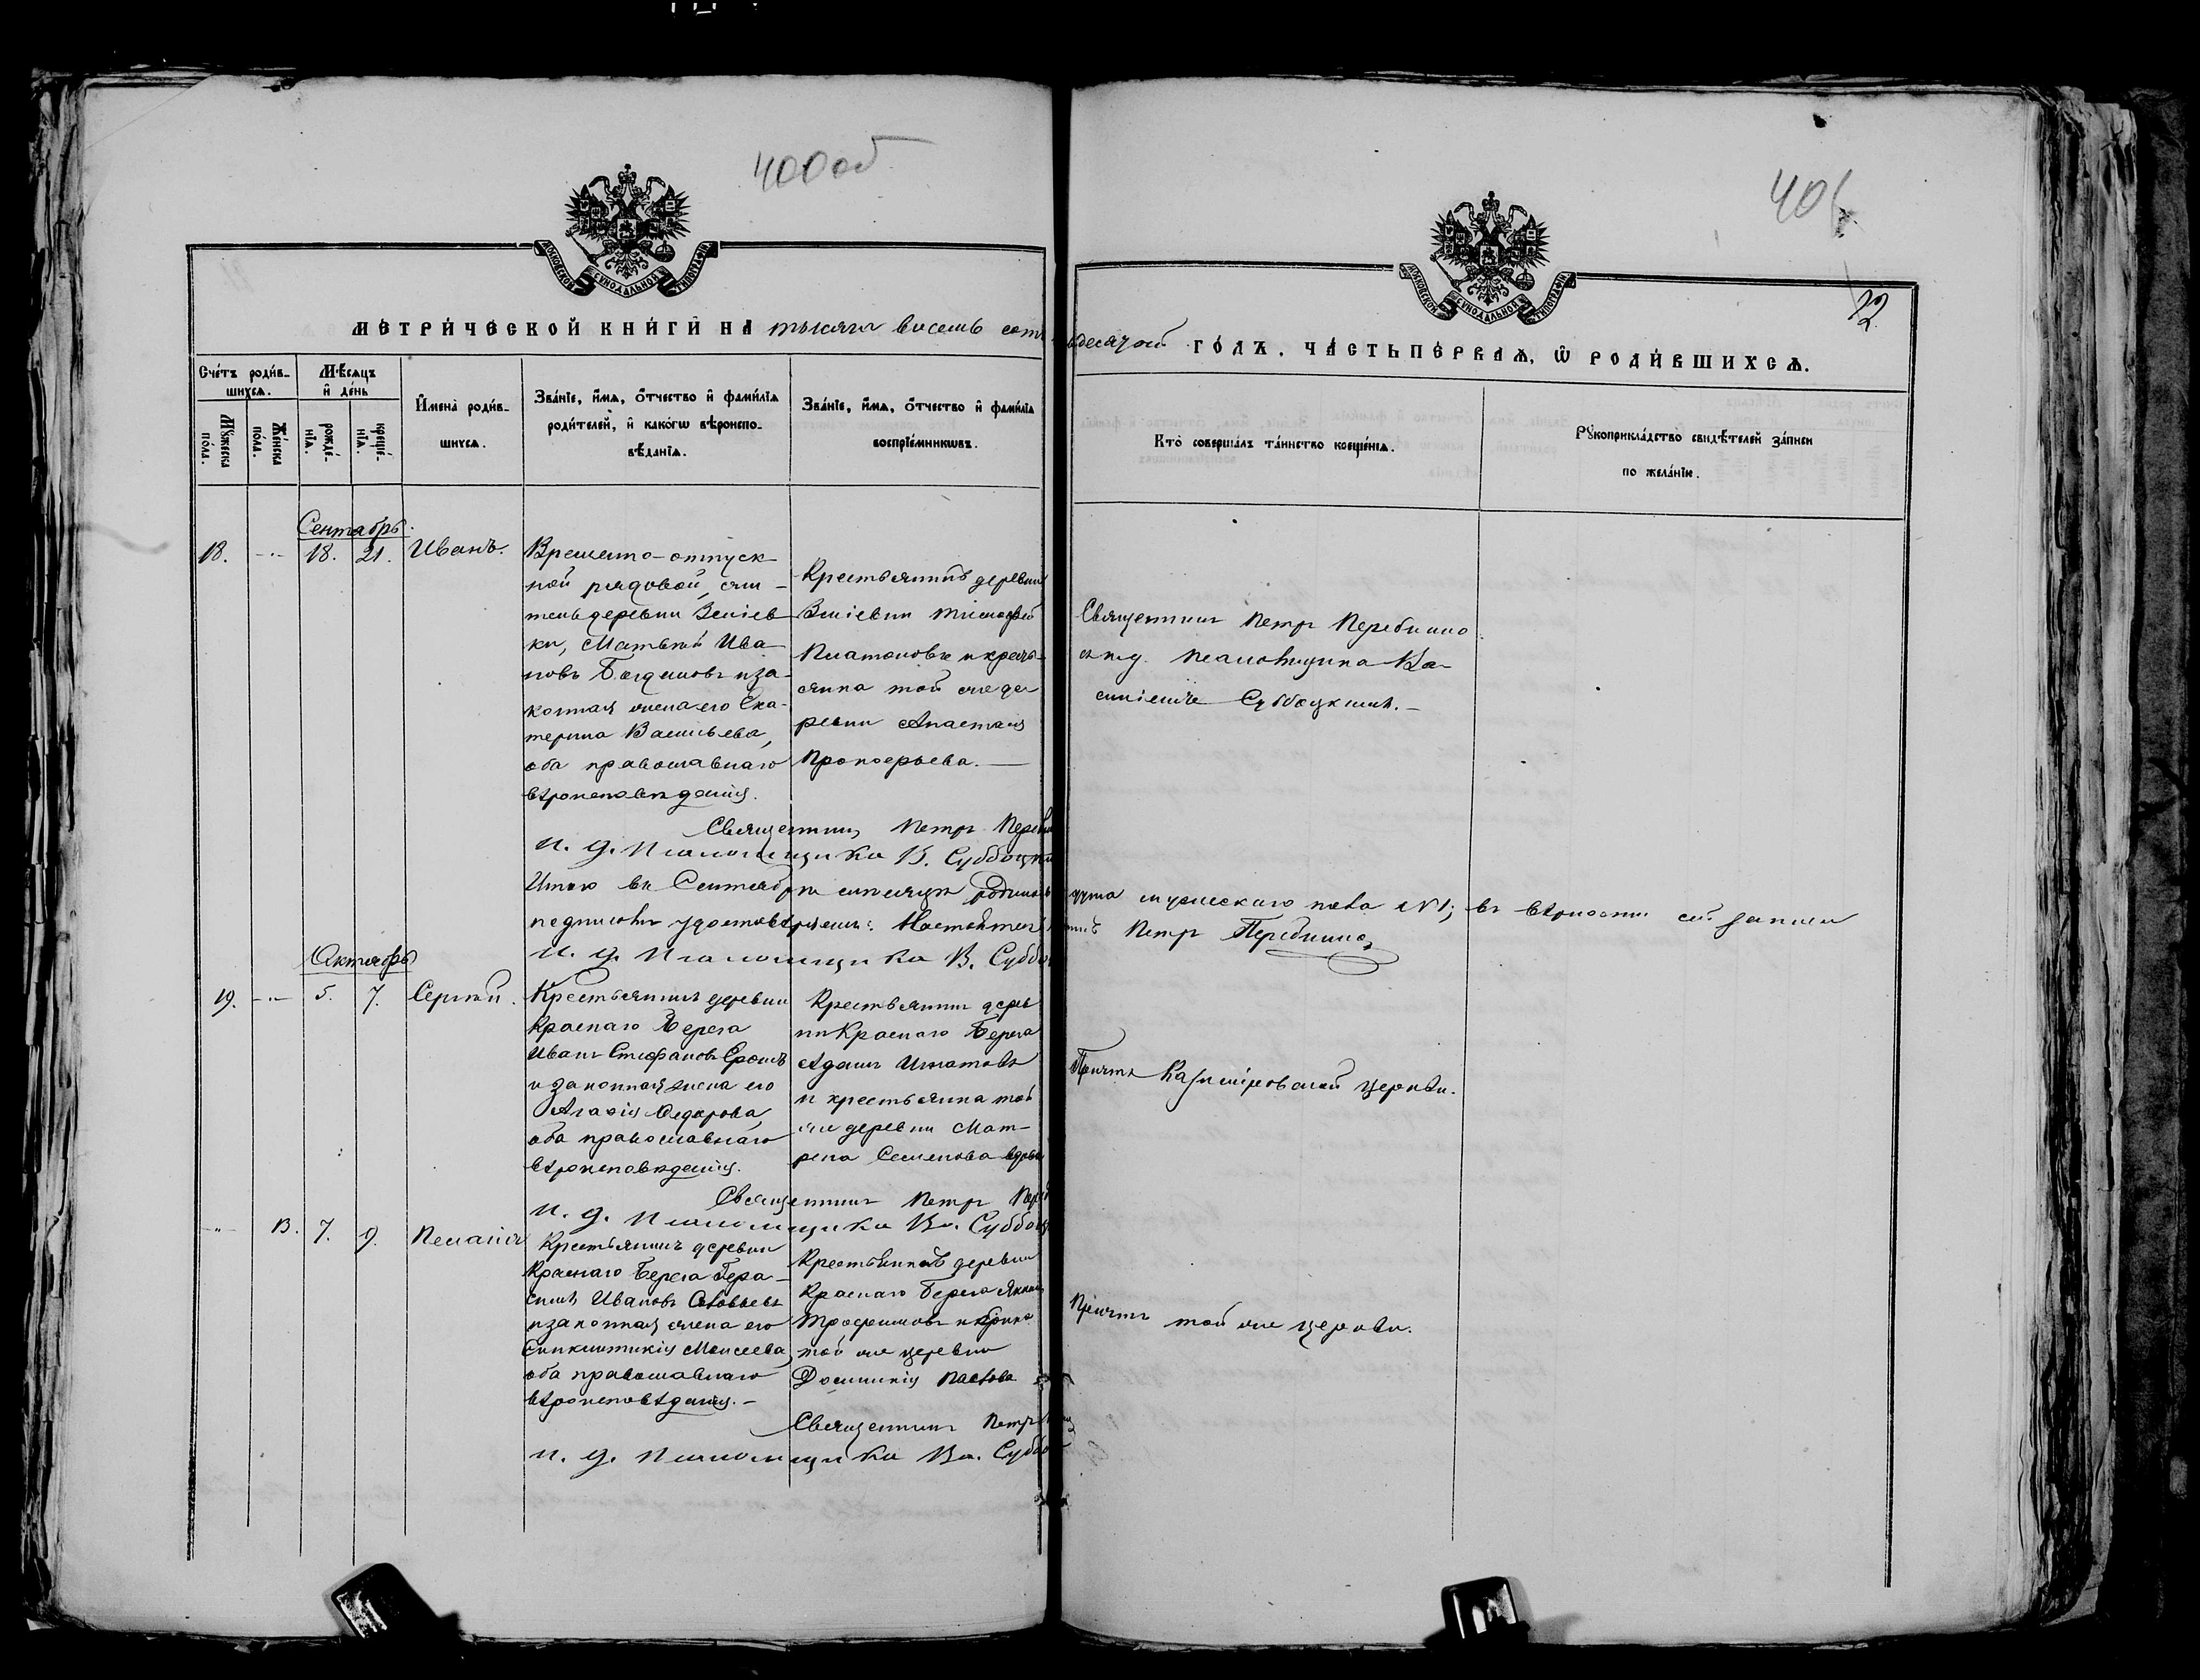 400 об
401
12.
МОСКОВСКОЙ СУНОДАЛЬНОЙ ТИПОГРАФІИ
МОСКОВСКОЙ СУНОДАЛЬНОЙ ТИПОГРАФІИ
МЕТРИ́ЧЕСКОЙ КНИ́ГИ НА тысяча восемь сотъ
десятой ГО́ДЪ. ЧА́СТЬ ПЕ́РВАѦ, Ѡ РОДИ́ВШИХСѦ.
Сче́тъ роди́в-
шихсѧ.
Мѣ́сѧцъ
и҆ де́нь
Мꙋ́жеска
по́ла.
Же́нска
по́ла.
рожде́-
нїѧ.
креще́-
нїѧ.
И҆мена̀ роди́в-
шихсѧ.
Зва́нїе, и҆́мѧ, ѻ҆́тчество и҆ фами́лїѧ
роди́телей, и҆ како́гѡ вѣроиспо-
вѣ́данїѧ.
Зва́нїе, и҆́мѧ, ѻ҆́тчество и҆ фами́лїѧ
воспрїе́мникѡвъ.
Кто̀ соверша́лъ та́инство креще́нїѧ.
Рꙋкоприкла́дство свидѣ́телей за́писи
по жела́нїю.
Сентябрь.
18. -"- 18. 21. Иванъ.
Временно-отпуск-
ной рядовой, жи-
тель деревни Зміев-
ки, Матвѣй Ива-
новъ Богдановъ и за-
конная жена его Ека-
терина Васильева,
оба православнаго
вѣроисповѣданія.
Крестьянинъ деревни
Зміевки Тимофей
Платоновъ и кресть-
янка той же де
ревни Анастасія
Прокофьева. —
Священникъ Петръ
и. д. псаломщика Ва-
Суббоцкій. —
Священникъ Петръ
И. д. Псаломщика В. Суббоцкій
Итого въ Сентябрѣ мѣсяцѣ родилось
мужескаго пола №1; въ вѣрности сей записи
подписомъ удостовѣряемъ: Настоятель
Петръ
И. д. Псаломщика В. Суббоцкій
Октябрь
19. -"- 5. 7. Сергѣй.
Крестьянинъ деревни
Краснаго Берега
Иванъ Стефановъ
и законная жена его
Агафія Федорова,
оба православнаго
вѣроисповѣданія.
Крестьянинъ дерев
ни Краснаго Берега
Адамъ Игнатовъ
и крестьянка той
же деревни Мат-
рена Семенова вдова
Причтъ Казимировской церкви.
Священникъ Петръ
И. д. Псаломщика Вл. Суббоцкій
-"- 13. 7. 9. Пелагія
Крестьянинъ деревни
Краснаго Берега Гера-
симъ Ивановъ Соловьевъ
и законная жена его
Синклитикія Моисеева,
оба православнаго
вѣроисповѣданія. —
Крестьянинъ деревни
Краснаго Берега Якимъ
Трофимовъ и
той же деревни
Домникія
Причтъ той же церкви.
Священникъ Петръ
И. д. Псаломщика Вл. Суббоцкій